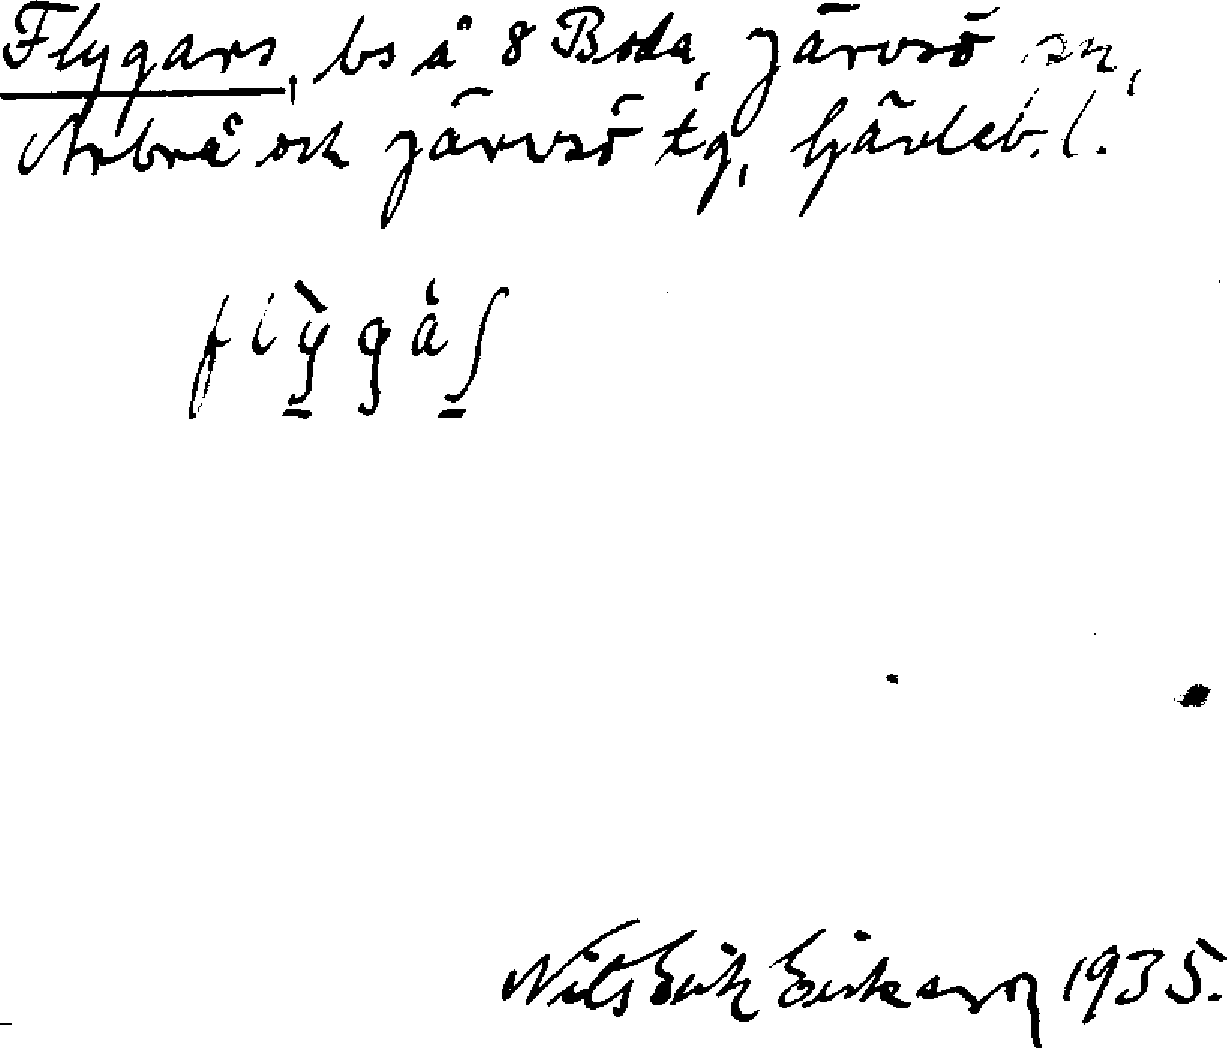 Flygars, bs å 8 Boda, Järvsö sn,
Arbrå och Järvsö tg, Gävleb. l.
Nils Erik Eriksson 1935.